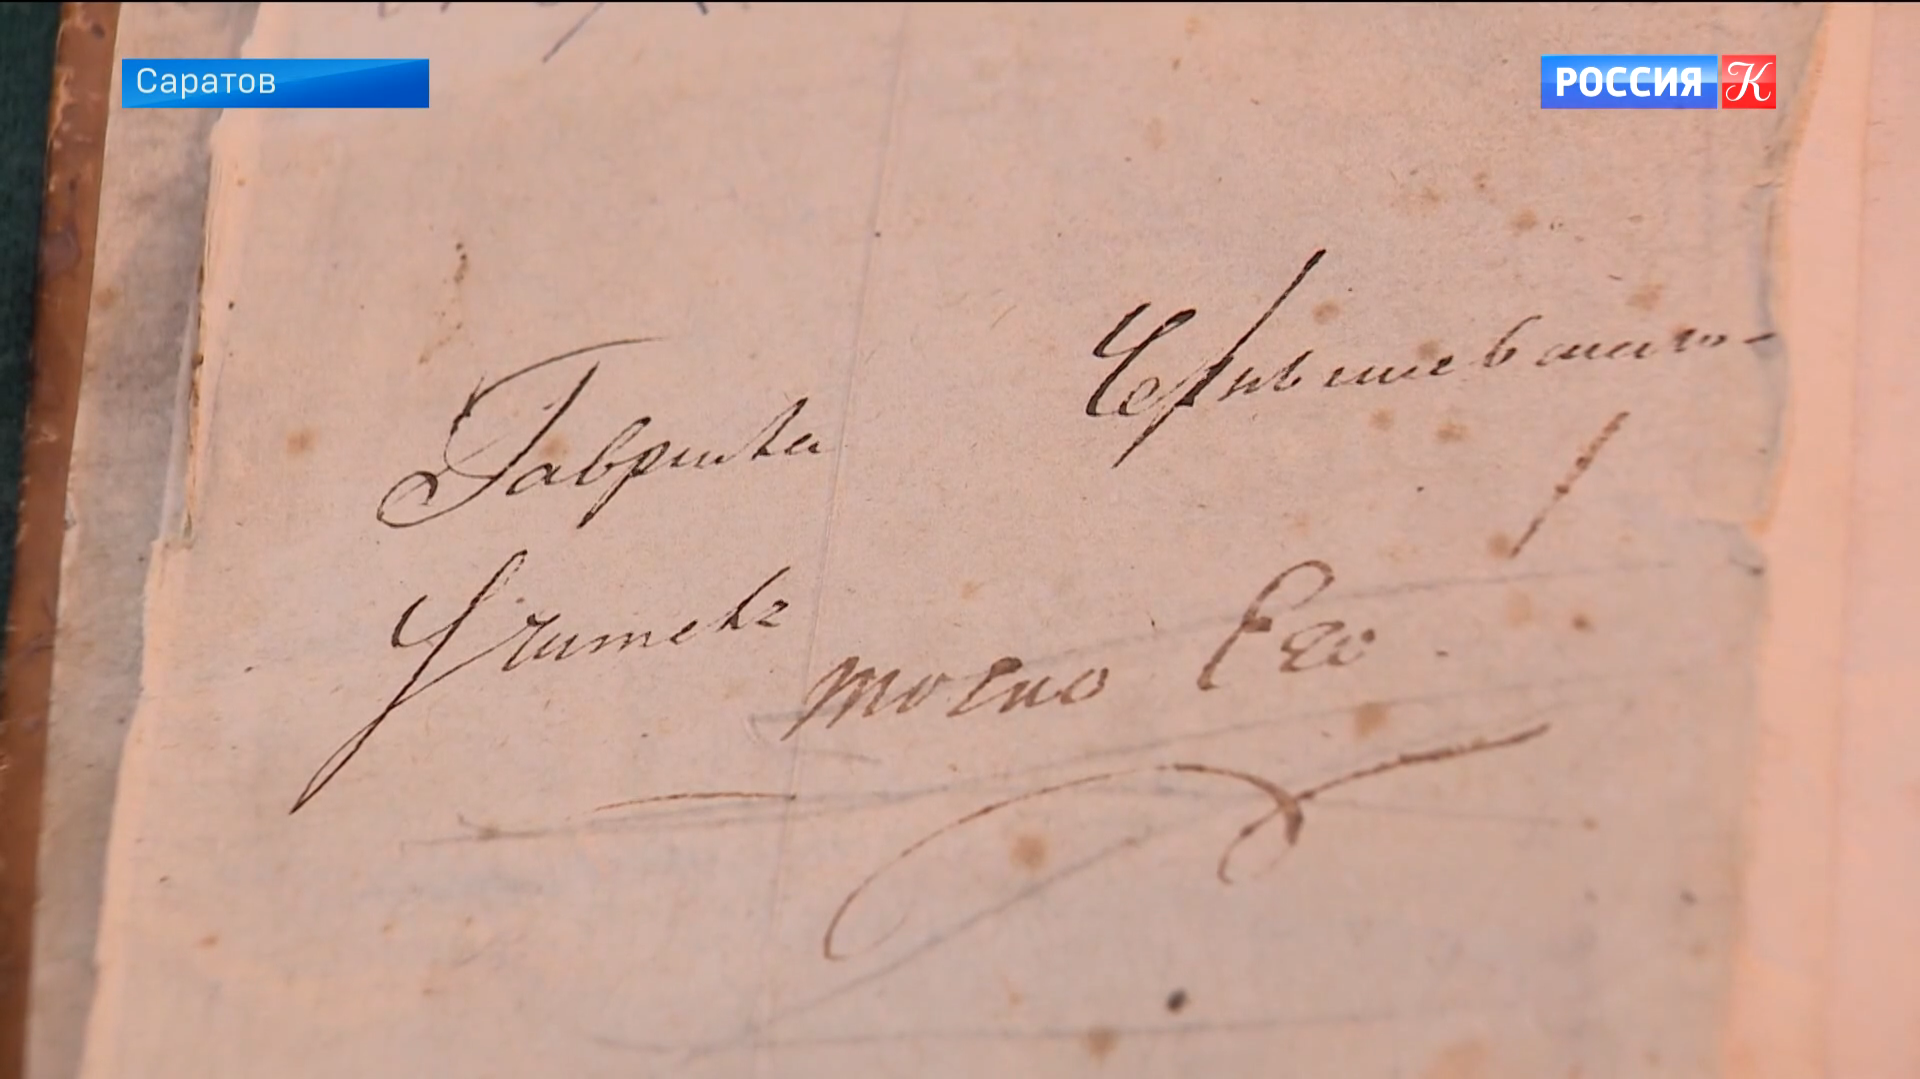 Саратов
РОССИЯ К
Гаврила Чернышевскаго
Учитель
точно Его.